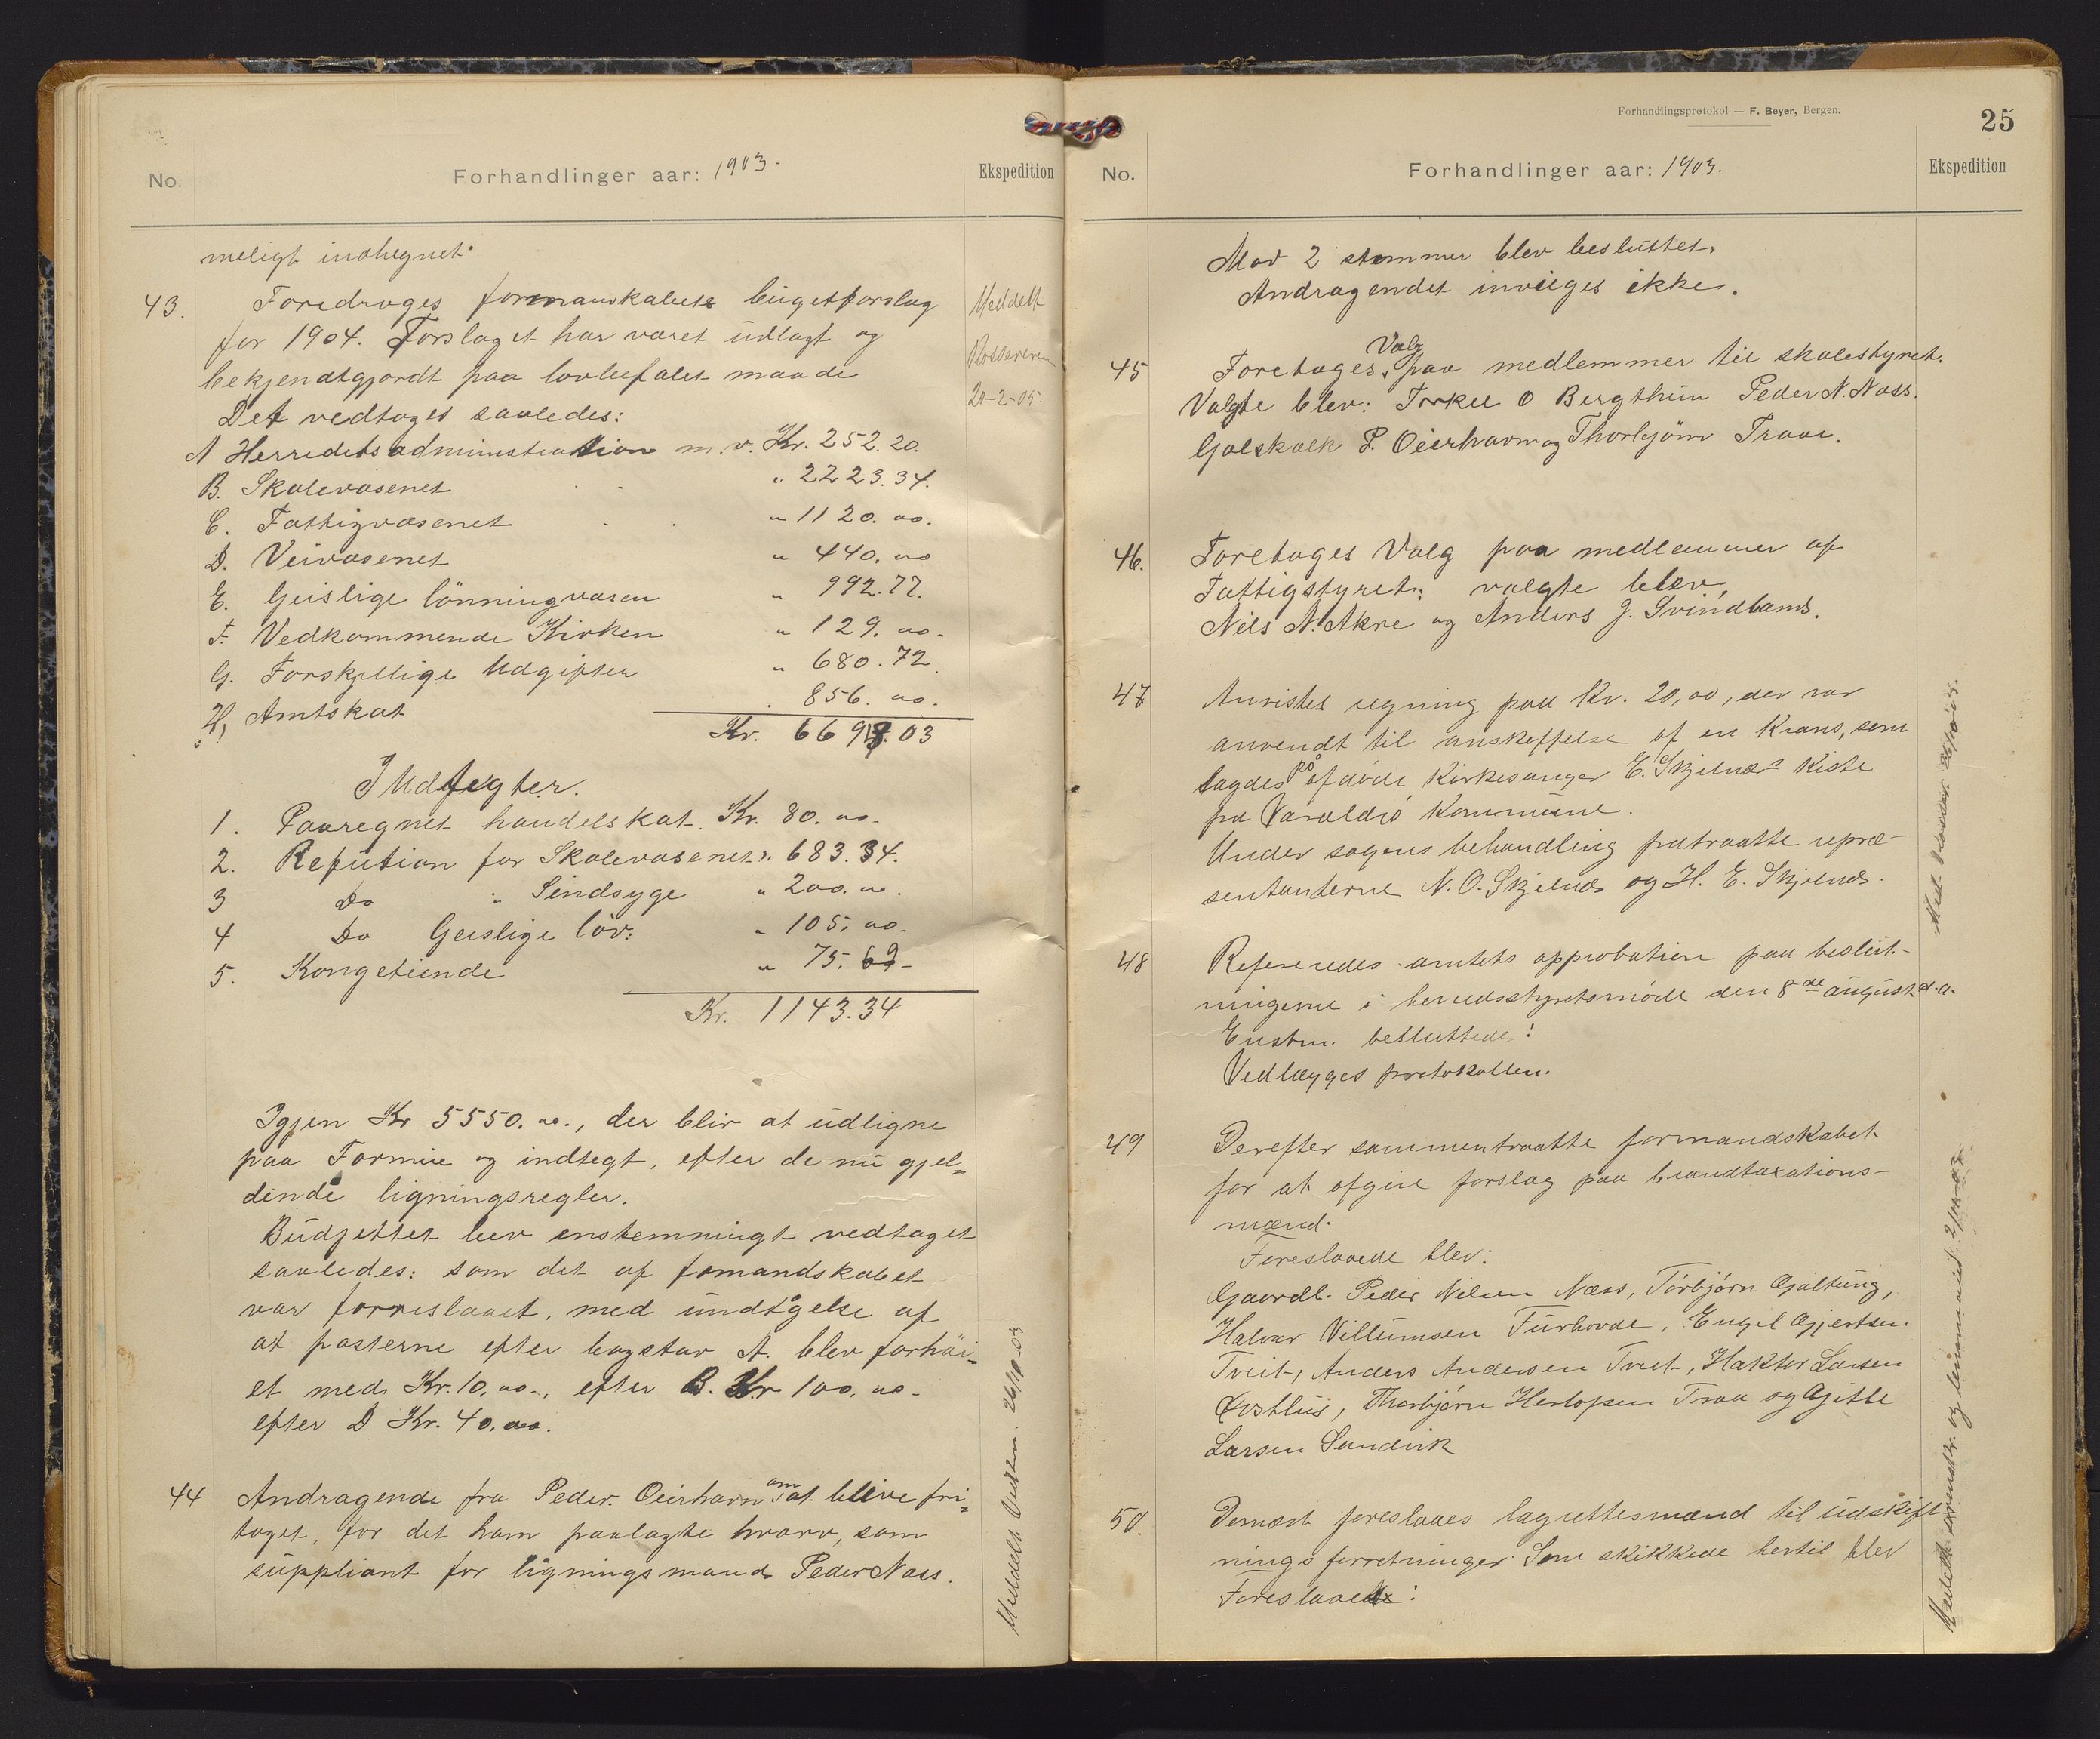 No.
Forhandlinger aar: 1903.
Ekspedition
meligt indhegnet.
43. Foredroges formanskabets bügetforslag
for 1904. Forslaget har været üdlagt og
bekjendtgjordt paa lovbefalet maade
Det vedtoges saaledes:
A Herredetsadministration m.v. Kr. 252.20.
B. Skolevæsenet " 2223.34.
C. Fattigvæsenet " 1120.00.
D. Veivæsenet " 440.00
E. Geislige lönningvæsen " 992.77.
F. Vedkommende Kirken " 129.00.
G. Forskjellige Udgifter " 680.72.
H, Amtskat 856.00.
Kr. 6693.03
Indtegter.
1. Paaregnet handelskat. Kr. 80.00.
2. Refution for Skolevæsenet " 683.34.
3 Do " Sindsyge " 200.00.
4 Do Geislige löv: " 105,00.
5. Kongetiende " 75.69
Kr. 1143.34
Igjen Kr 5550.00., der blir at üdligne
paa Formüe og indtegt, efter de nü gjel-
dende ligningsregler.
Büdjettet blev enstemmingt vedtaget
saaledes: som det af fomandskabet
var forreslaaet, med ündtgelse af
at posterne efter bogstav A. blev forhöi-
et med Kr. 10.00., efter B. Kr 100.00.
efter D Kr. 40.00.
44 Andragende fra Peder Oeierhavn om at blive fri-
taget, for det ham paalagte hværv, som
süppliant for ligningsmand Peder Næss.
Meddelt
20-2-05.
Meddelt Vedkm. 26/10-03
Forhandlingsprotokol — F. Beyer, Bergen.
25
No.
Forhandlinger aar: 1903.
Ekspedition
Mod 2 stemmer blev beslüttet.
Andragendet invilges ikke.
45 Foretoges Valg paa medlemmer til skolestyret.
Valgte blev: Torkel O Bergthün Peder N. Næss.
Golskalk P. Oeierhavn og Thorbjörn Traae.
46. Foretoges Valg paa medlemmer af
Fattigstyret; valgte blev,
Nils N. Akre og Anders J. Svindland.
47 Anvistes regning paa Kr. 20,00, der var
anvendt til anskaffelse af en Krans, som
lagdes på afdøde Kirkesanger E. Skjelnæs Kiste
fra Varaldsø Kommune.
Under sagens behandling fratraatte repræ-
sentanterne N. O. Skjelnæs og H. E. Skjelnæs.
48 Refereredes amtets approbation paa beslut-
ningerne i herredsstyretsmøde den 8de august d.a.
Enstm. besluttede:
Vedlægges protokollen.
49 Derefter sammentraatte formandskabet
for at afgive forslag paa brandtaxations-
mænd.
Foreslaaede blev:
Gaardb. Peder Nilsen Næss, Torbjørn Gjaltung,
Halvar Villumsen Furhovde, Engel Gjertsen
Tveit, Anders Andersen Tveit, Haktor Larsen
Østhus, Thorbjørn Herlofsen Traa og Gitle
Larsen Sandvik
50. Dernæst foreslaaes lagrettesmænd til udskift-
nings forretninger. Som skikkede hertil blev
Foreslaaede:
Medd. Kasserer 26/10-03.
Meddelt sorenskr. og lensmand 2/11-03